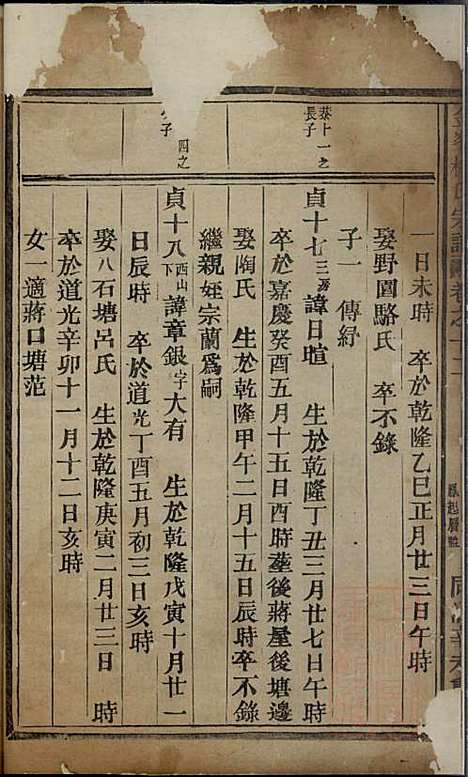 一日未時　卒於乾隆乙巳正月廿三日午時
娶野園駱氏　卒不錄
子一　傳紓
恭十一之長子
貞十七三房諱日暄　生於乾隆丁丑三月廿七日午時
卒於嘉慶癸酉五月十五日酉時塟後蔣屋後塘邊
娶陶氏　生於乾隆甲午二月十五日辰時卒不錄
繼親姪宗蘭爲嗣
四之子
貞十八西山下諱章銀字大有　生於乾隆戊寅十月廿一
日辰時　卒於道光丁酉五月初三日亥時
娶八石塘呂氏　生於乾隆庚寅二月廿三日　時
卒於道光辛卯十一月十二日亥時
女一適蔣口塘范